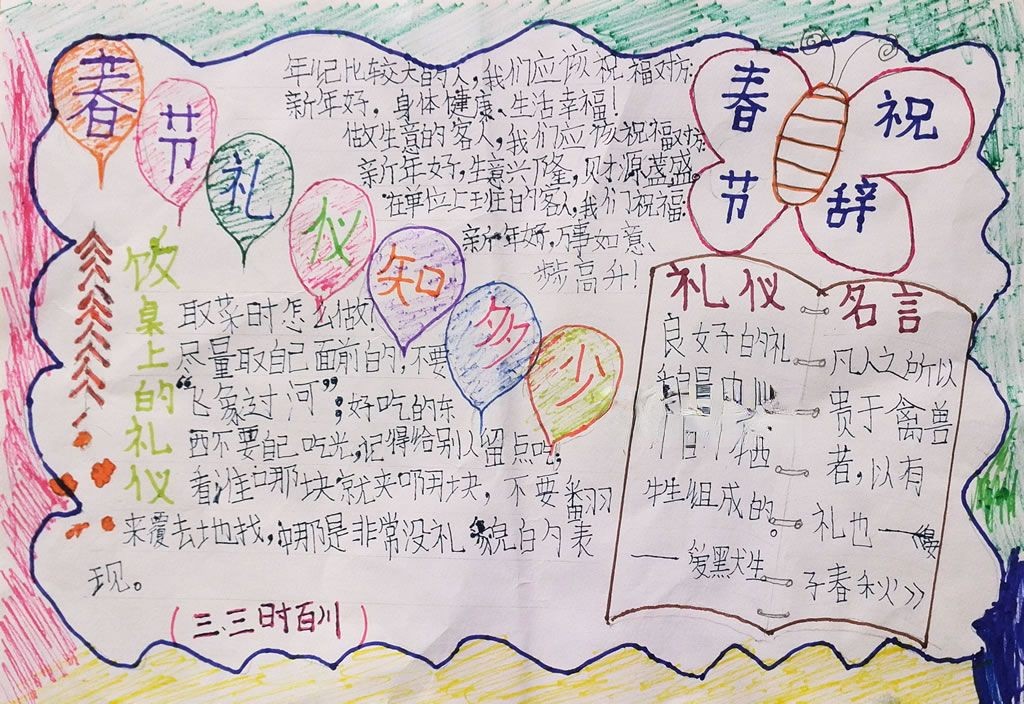 春节礼仪知多少
年纪比较大的人,我们应该祝福对方:
新年好,身体健康、生活幸福!
做生意的客人,我们应该祝福对方:
新年好,生意兴隆,财源茂盛。
在单位上班的客人,我们祝福:
新年好,万事如意、
步高升!
春节
祝辞
饮桌上的礼仪
取菜时怎么做!
尽量取自己面前的,不要
“飞象过河”;好吃的东
西不要自己吃光,记得给别人留点吃;
看准哪块就夹哪块,不要翻
来覆去地找,那是非常没礼貌的表
现。
(三.三时百川)
礼仪
名言
良好的礼
牺
牲组成的。
——爱默生
凡人之所以
贵于禽兽
者,以有
礼也——《晏
子春秋》